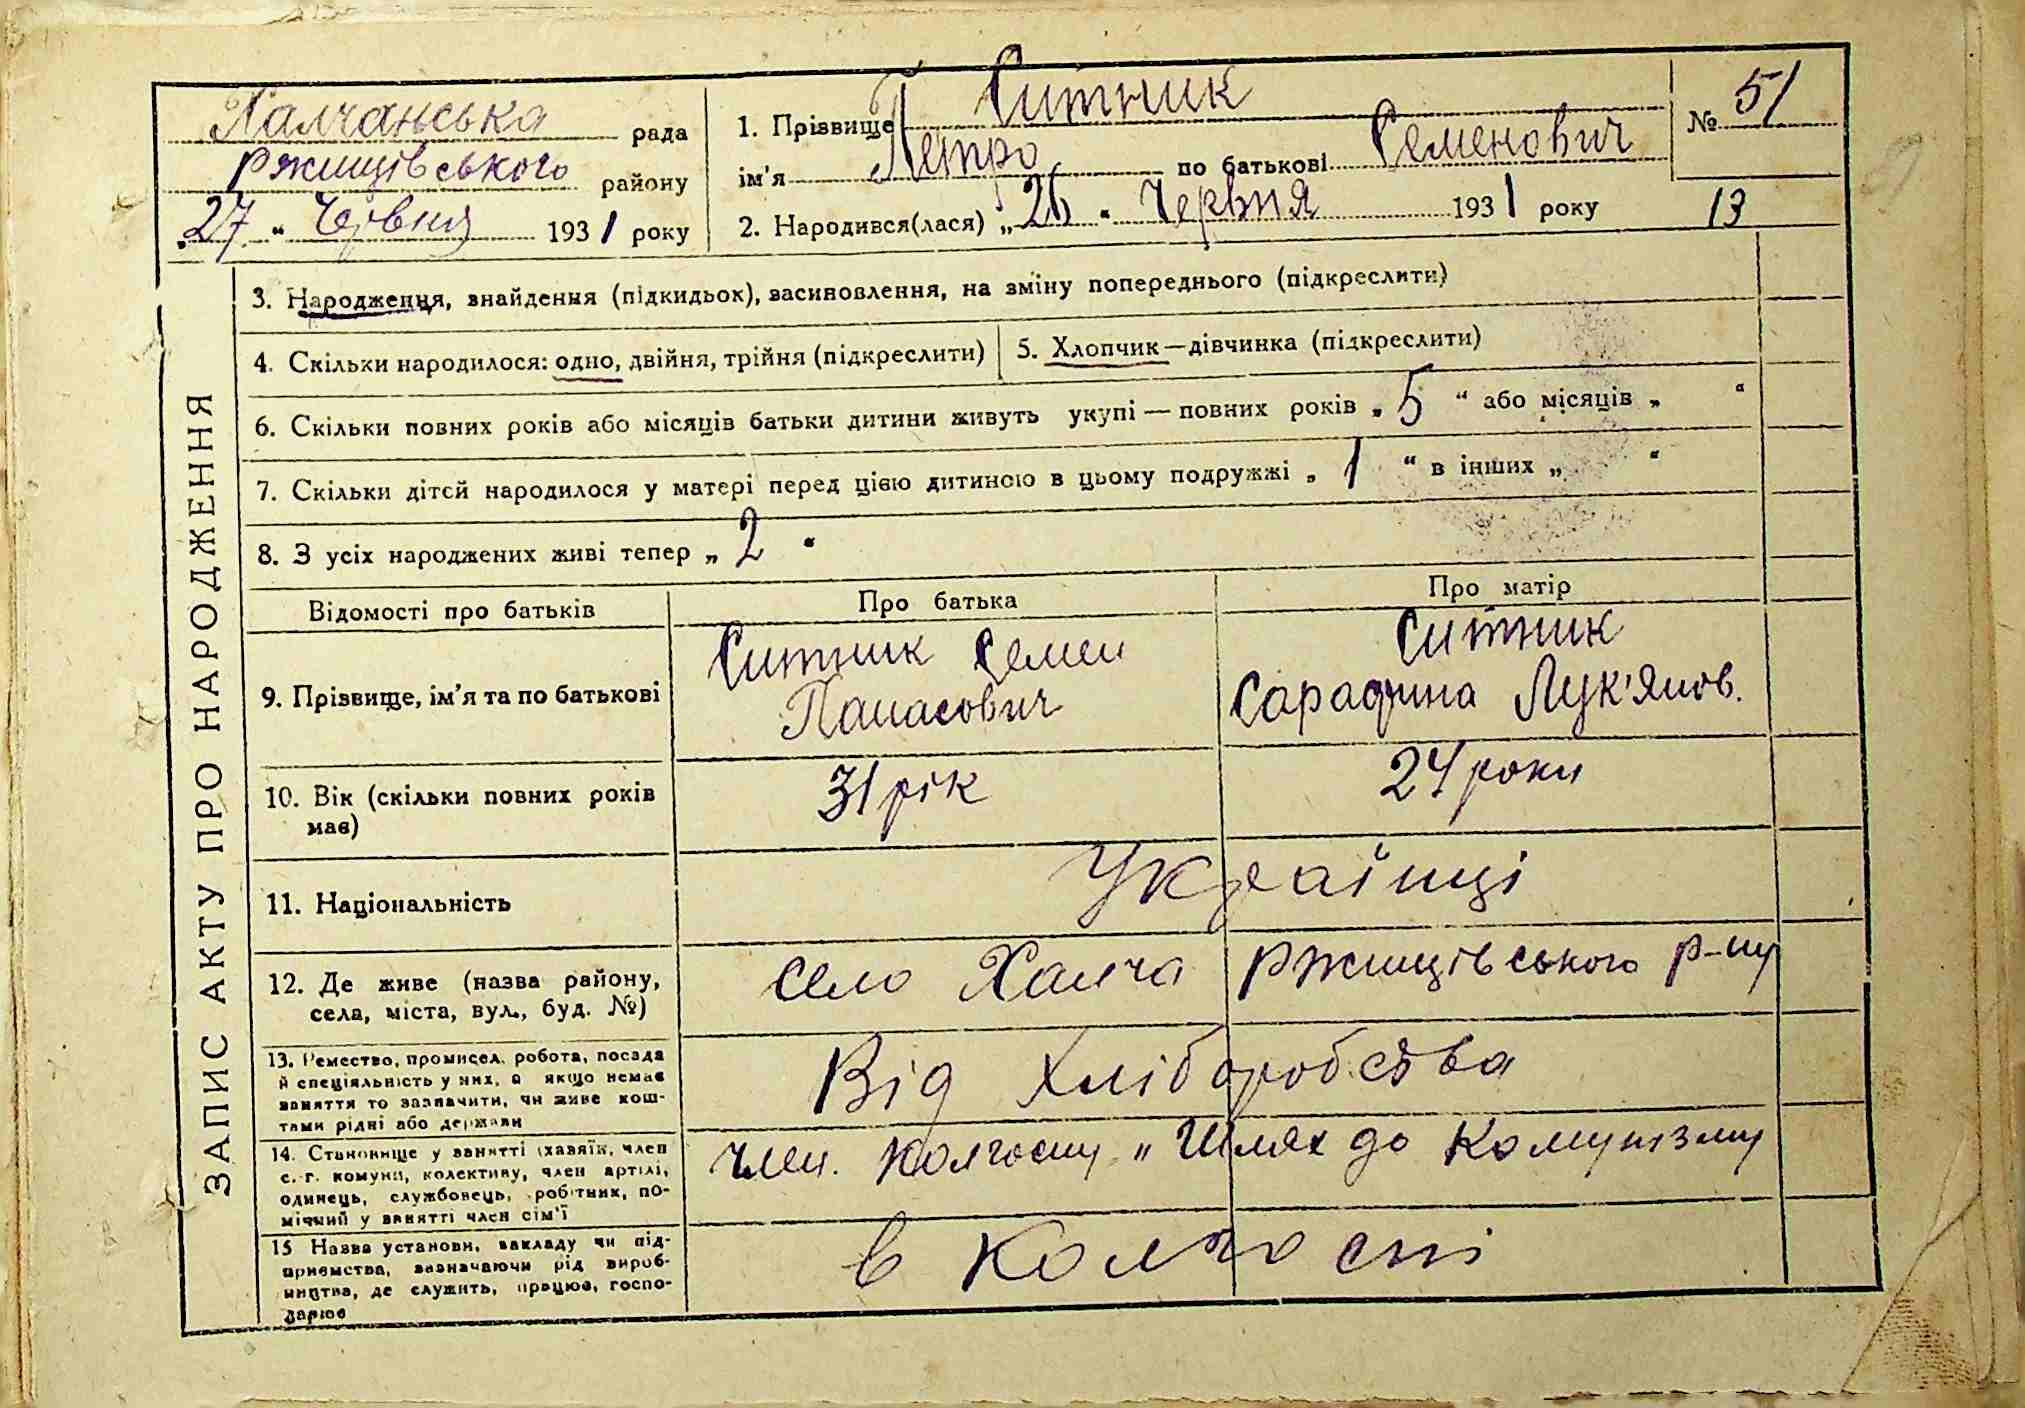 ЗАПИС АКТУ ПРО НАРОДЖЕННЯ
Халчанська рада
Ржищівського району
„27“ Червня 1931 року
1. Прізвище Ситник
ім'я Петро по батькові Семенович
2. Народився(лася) „26“ Червня 1931 року
№ 51
13
3. Народження, знайдення (підкидьок), засиновлення, на зміну попереднього (підкреслити)
4. Скільки народилося: одно, двійня, трійня (підкреслити)
5. Хлопчик—дівчинка (підкреслити)
6. Скільки повних років або місяців батьки дитини живуть укупі — повних років „5“ або місяців „ “
7. Скільки дітей народилося у матері перед цією дитиною в цьому подружжі „1“ в інших „ “
8. З усіх народжених живі тепер „2“
Відомості про батьків
Про батька
Про матір
9. Прізвище, ім'я та по батькові
Ситник Семен
Панасович
Ситник
Сарафина Лук'янов.
10. Вік (скільки повних років
має)
31 рік
24 роки
11. Національність
Українці
12. Де живе (назва району,
села, міста, вул., буд. №)
село Халча Ржищівського р-ну
13. Ремество, промисел, робота, посада
й спеціяльність у них, а якщо немає
заняття то зазначити, чи живе кош-
тами рідні або держави
Від Хліборобства
14. Становище у занятті (хазяїн, член
с.-г. комуни, колективу, член артілі,
одинець, службовець, робітник, по-
мічний у занятті член сім'ї
член. колгоспу „Шлях до Комунізму
15 Назва установи, закладу чи під-
приємства, зазначаючи рід вироб-
ництва, де служить, працює, госпо-
дарює
в Колгоспі